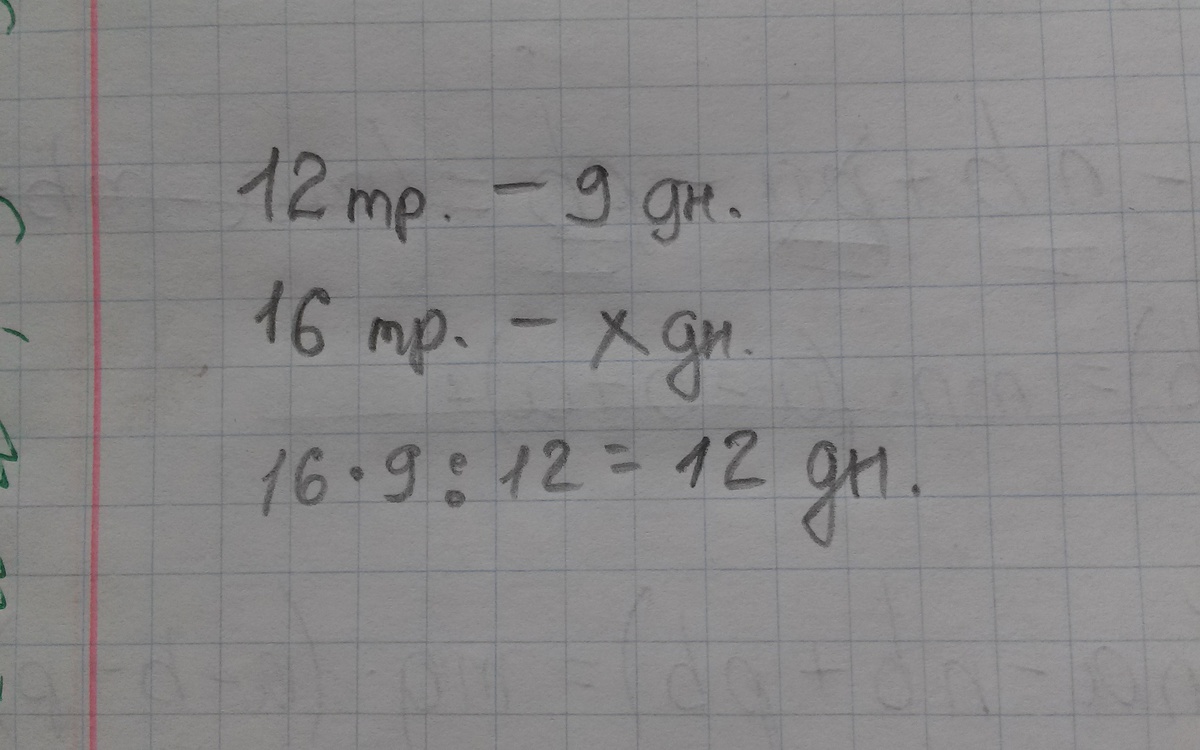 12 тр. - 9 дн.
16 тр. - x дн.
16 · 9 : 12 = 12 дн.